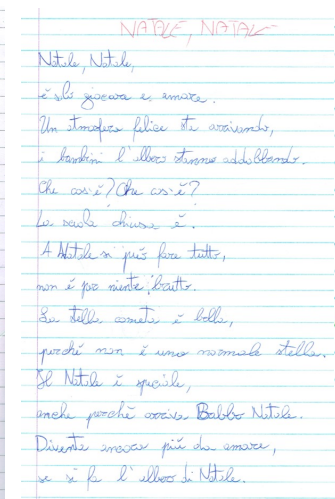 NATALE, NATALE
Natale, Natale,
è solo giocare e amare.
Un atmosfera felice sta arrivando,
i bambini l'albero stanno addobbando.
Che cos'è? Che cos'è?
La scuola chiusa è.
A Natale si può fare tutto,
non è per niente brutto.
La stella cometa è bella,
perché non è una normale stella.
Il Natale è speciale,
anche perché arriva Babbo Natale.
Diventa ancora più da amare,
se si fa l'albero di Natale.